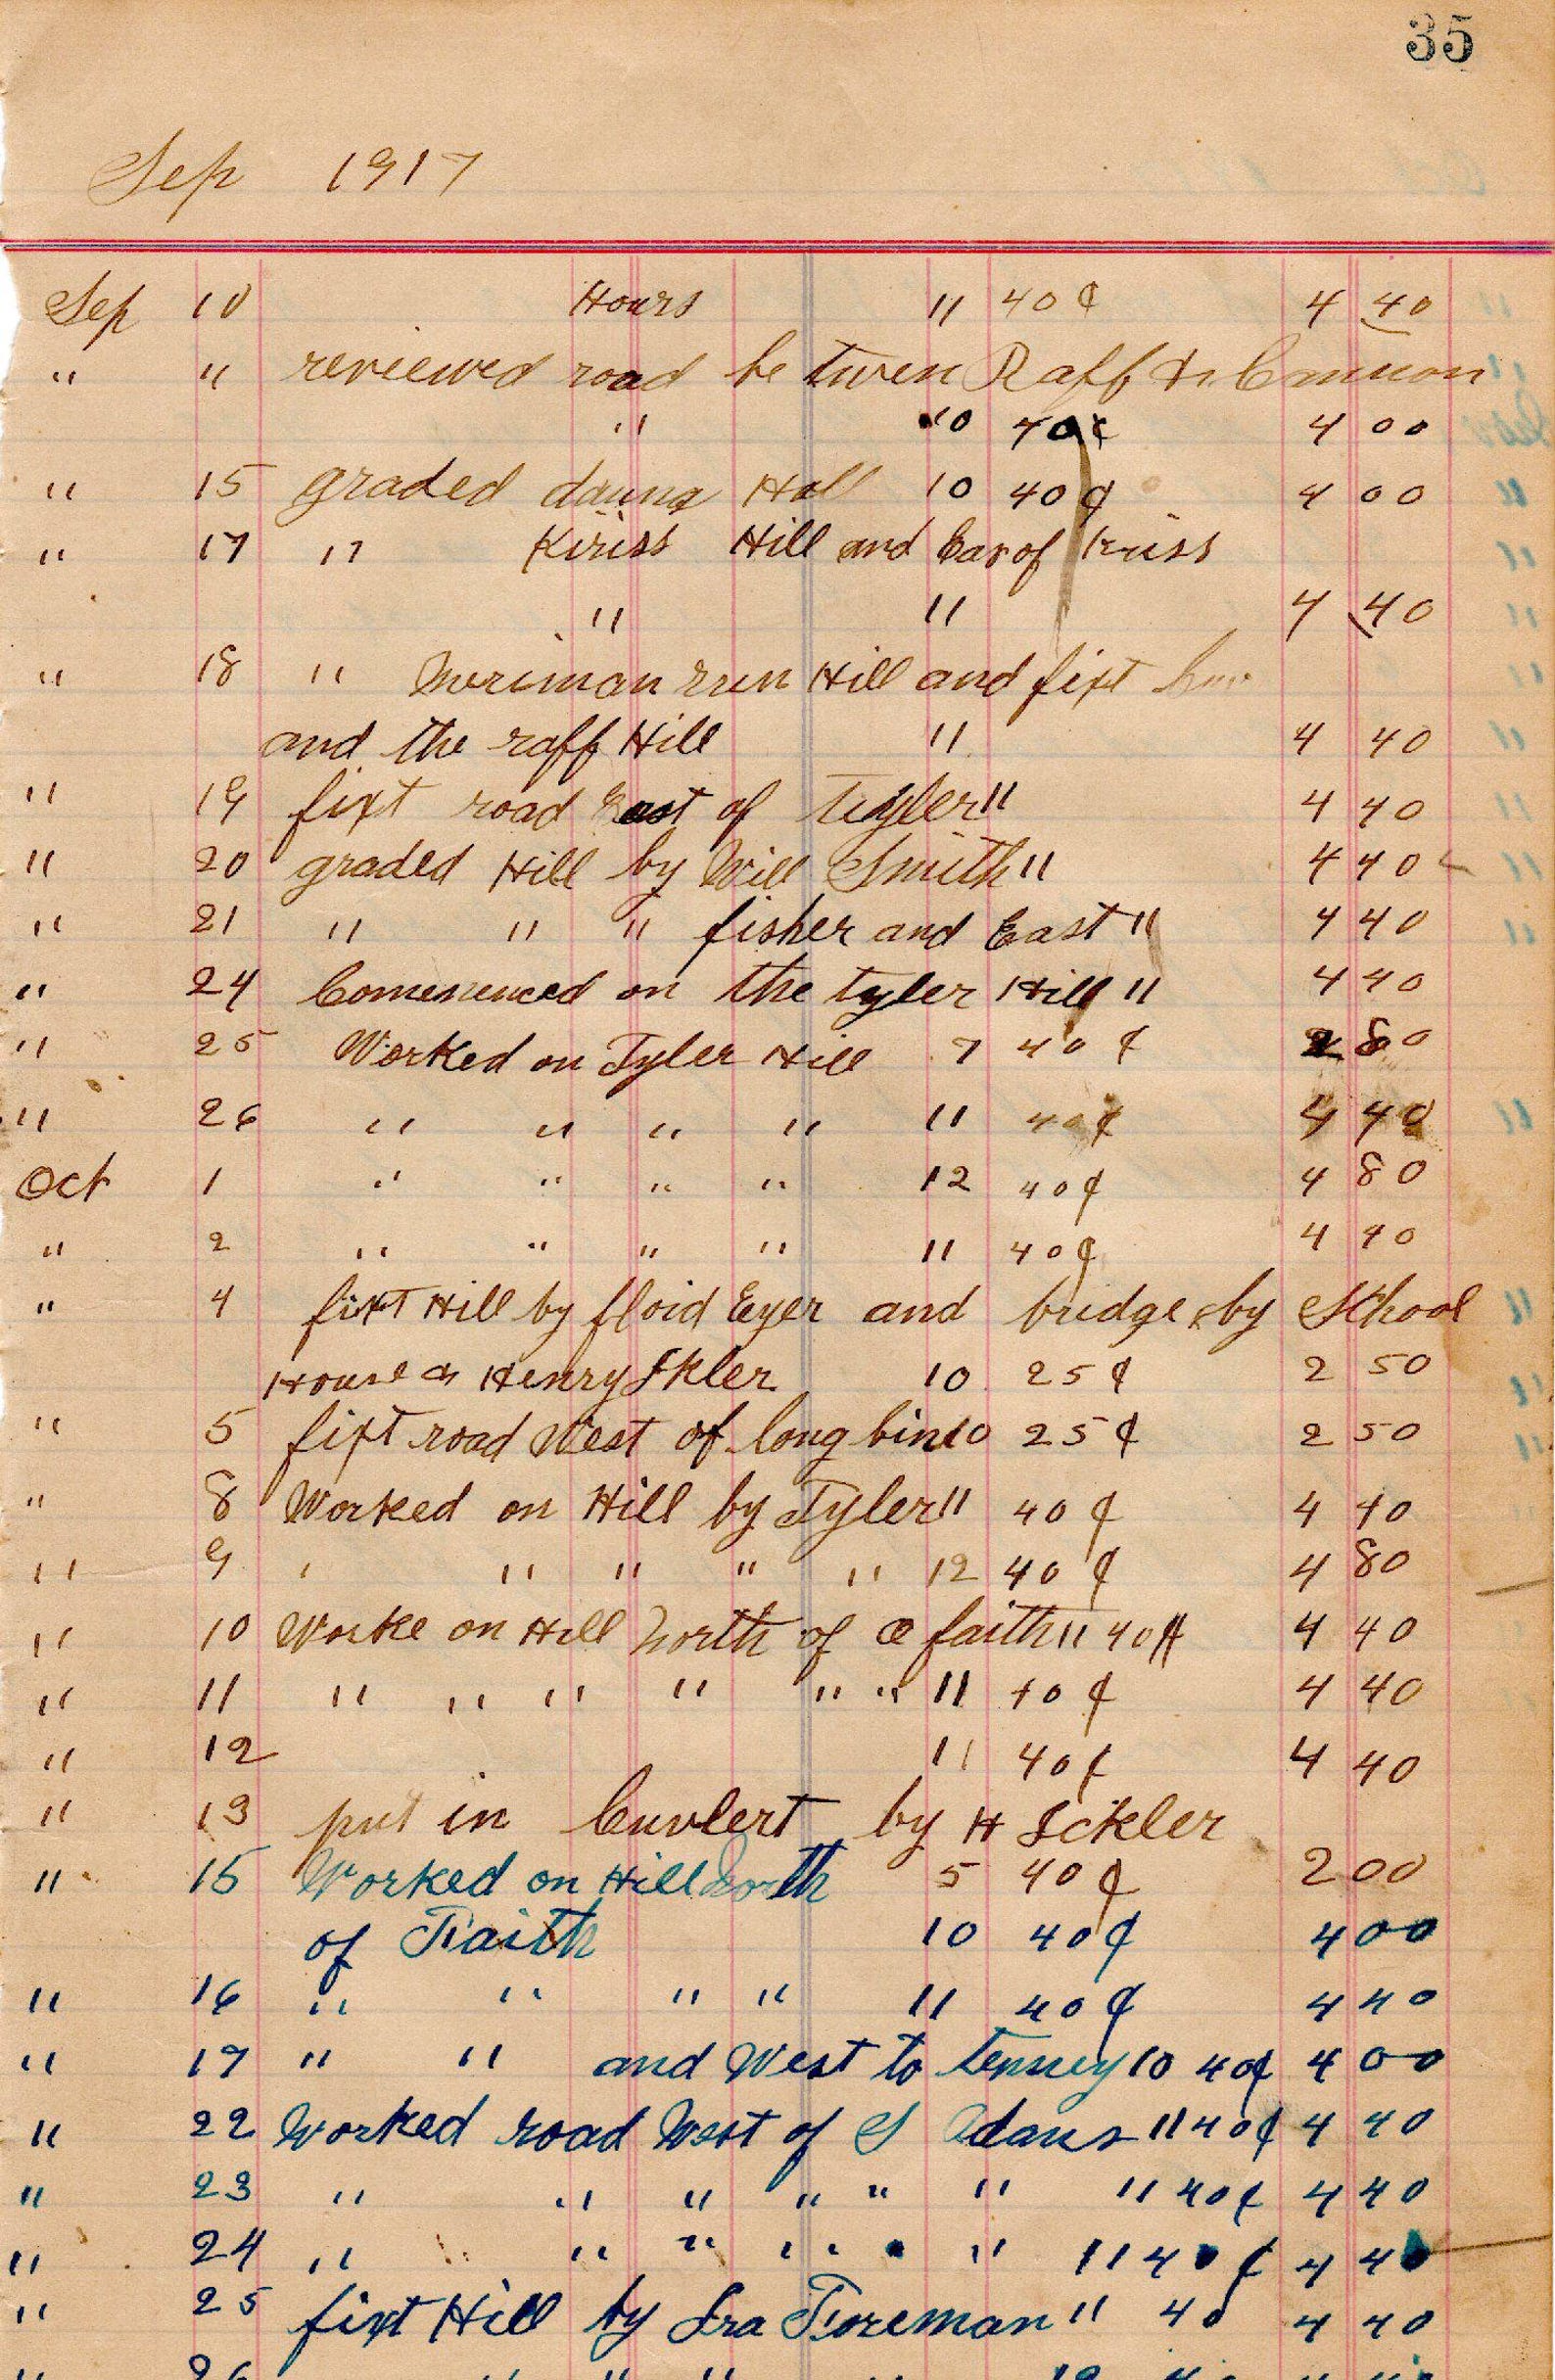 35
Sep 1917
Sep 10 Hours 11 40¢ 4 40
" " reviewed road be tween Raff &
" 10 40¢ 4 00
" 15 graded 10 40¢ 4 00
" 17 " Kiriss Hill and Eas of Kriss
" 11 4 40
" 18 " Merriman run Hill and fixt
and the raff Hill 11 4 40
" 19 fixt road East of Tuyler 11 4 40
" 20 graded Hill by Will Smith 11 4 40
" 21 " " " fisher and East 11 4 40
" 24 Comenenced on the tyler Hill 11 4 40
" 25 Worked on Tyler Hill 7 40¢ 2 80
" 26 " " " " 11 40¢ 4 40
Oct 1 " " " " 12 40¢ 4 80
" 2 " " " " 11 40¢ 4 40
" 4 fixt Hill by floid Eyer and bridge by School
House & Henry Ikler 10 25¢ 2 50
" 5 fixt road West of long bine 10 25¢ 2 50
" 8 Worked on Hill by Tyler 11 40¢ 4 40
" 9 " " " " " 12 40¢ 4 80
" 10 Worke on Hill North of faith 11 40¢ 4 40
" 11 " " " " " " 11 40¢ 4 40
" 12 11 40¢ 4 40
" 13 put in Cuvlert by H Ickler
" 15 Worked on Hill North 5 40¢ 2 00
of Faith 10 40¢ 4 00
" 16 " " " " 11 40¢ 4 40
" 17 " " and West to tenney 10 40¢ 4 00
" 22 Worked road West of S Adams 11 40¢ 4 40
" 23 " " " " " " 11 40¢ 4 40
" 24 " " " " " " " 11 40¢ 4 40
" 25 fixt Hill by Ira Foreman 11 40 4 40